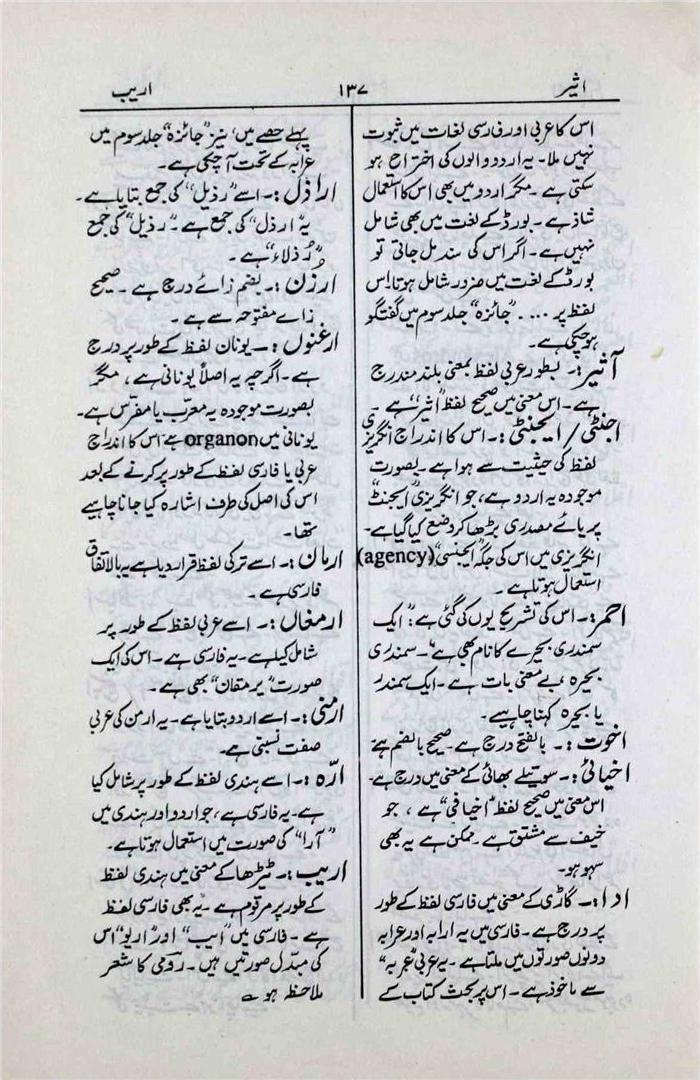 اثیر
۱۳۷
اریب
اس کا عربی اور فارسی لغات میں ثبوت
نہیں ملا۔ یہ اردو والوں کی اختراح ہو
سکتی ہے۔ مگر اردو میں بھی اس کا استعمال
شاذ ہے۔ بورڈ کے لغت میں بھی شامل
نہیں ہے۔ اگر اس کی سند مل جاتی تو
بورڈ کے لغت میں ضرور شامل ہوتا۔ اس
لفظ پر .... "جائزہ" جلد سوم میں گفتگو
ہوچکی ہے۔
آثیر:۔ بطور عربی لفظ بمعنی بلند مندرج
ہے۔ اس معنی میں صحیح لفظ "اثیر" ہے۔
اجنٹی / ایجنٹی:۔ اس کا اندراج انگریزی
لفظ کی حیثیت سے ہوا ہے۔ بصورت
موجودہ یہ اردو ہے، جو انگریزی "ایجنٹ"
پر یائے مصدری بڑھا کر وضع کیا گیا ہے۔
انگریزی میں اس کی جگہ "ایجنسی" (agency)
استعمال ہوتا ہے۔
احمر:۔ اس کی تشریح یوں کی گئی ہے: "ایک
سمندری بحیرے کا نام بھی ہے"۔ سمندری
بحیرہ بے معنی بات ہے۔ ایک سمندر
یا بحیرہ کہنا چاہیے۔
اخوت:۔ بالفتح درج ہے۔ صحیح بالضم ہے۔
اخیائی:۔ سوتیلے بھائی کے معنی میں درج ہے۔
اس معنی میں صحیح لفظ "اخیافی" ہے، جو
خیف سے مشتق ہے۔ ممکن ہے یہ بھی
سہو ہو۔
ادا:۔ گاڑی کے معنی میں فارسی لفظ کے طور
پر درج ہے۔ فارسی میں یہ ارابہ اور عرابہ
دونوں صورتوں میں ملتا ہے۔ یہ عربی "عربہ"
سے ماخوذ ہے۔ اس پر بحث کتاب کے
پہلے حصے میں، نیز "جائزہ" جلد سوم میں
عرابہ کے تحت آچکی ہے۔
اراذل:۔ اسے "رذیل" کی جمع بتایا ہے۔
یہ "ارذل" کی جمع ہے۔ "رذیل" کی جمع
"رُذلاء" ہے۔
ارزن:۔ بضم زائے درج ہے۔ صحیح
زاے مفتوحہ سے ہے۔
ارغنوں:۔ یونان لفظ کے طور پر درج
ہے۔ اگرچہ یہ اصلاً یونانی ہے، مگر
بصورت موجودہ یہ معرّب یا مفرّس ہے۔
یونانی میں organon ہے اس کا اندراج
عربی یا فارسی لفظ کے طور پر کرنے کے بعد
اس کی اصل کی طرف اشارہ کیا جانا چاہیے
تھا۔
ارمان:۔ اسے ترکی لفظ قرار دیا ہے یہ بالاتفاق
فارسی ہے۔
ارمغاں:۔ اسے عربی لفظ کے طور پر
شامل کیا ہے۔ یہ فارسی ہے۔ اس کی ایک
صورت "یرمقان" بھی ہے۔
ارمنی:۔ اسے اردو بتایا ہے۔ یہ ارمن کی عربی
صفت نسبتی ہے۔
ارّہ:۔ اسے ہندی لفظ کے طور پر شامل کیا
ہے۔ یہ فارسی ہے، جو اردو اور ہندی میں
"آرا" کی صورت میں استعمال ہوتا ہے۔
اریب:۔ ٹیڑھا کے معنی میں ہندی لفظ
کے طور پر مرقوم ہے۔ یہ بھی فارسی لفظ
ہے۔ فارسی میں "اُیب" اور "اریو" اس
کی مبدّل صورتیں ہیں۔ رومی کا شعر
ملاحظہ ہو ؎